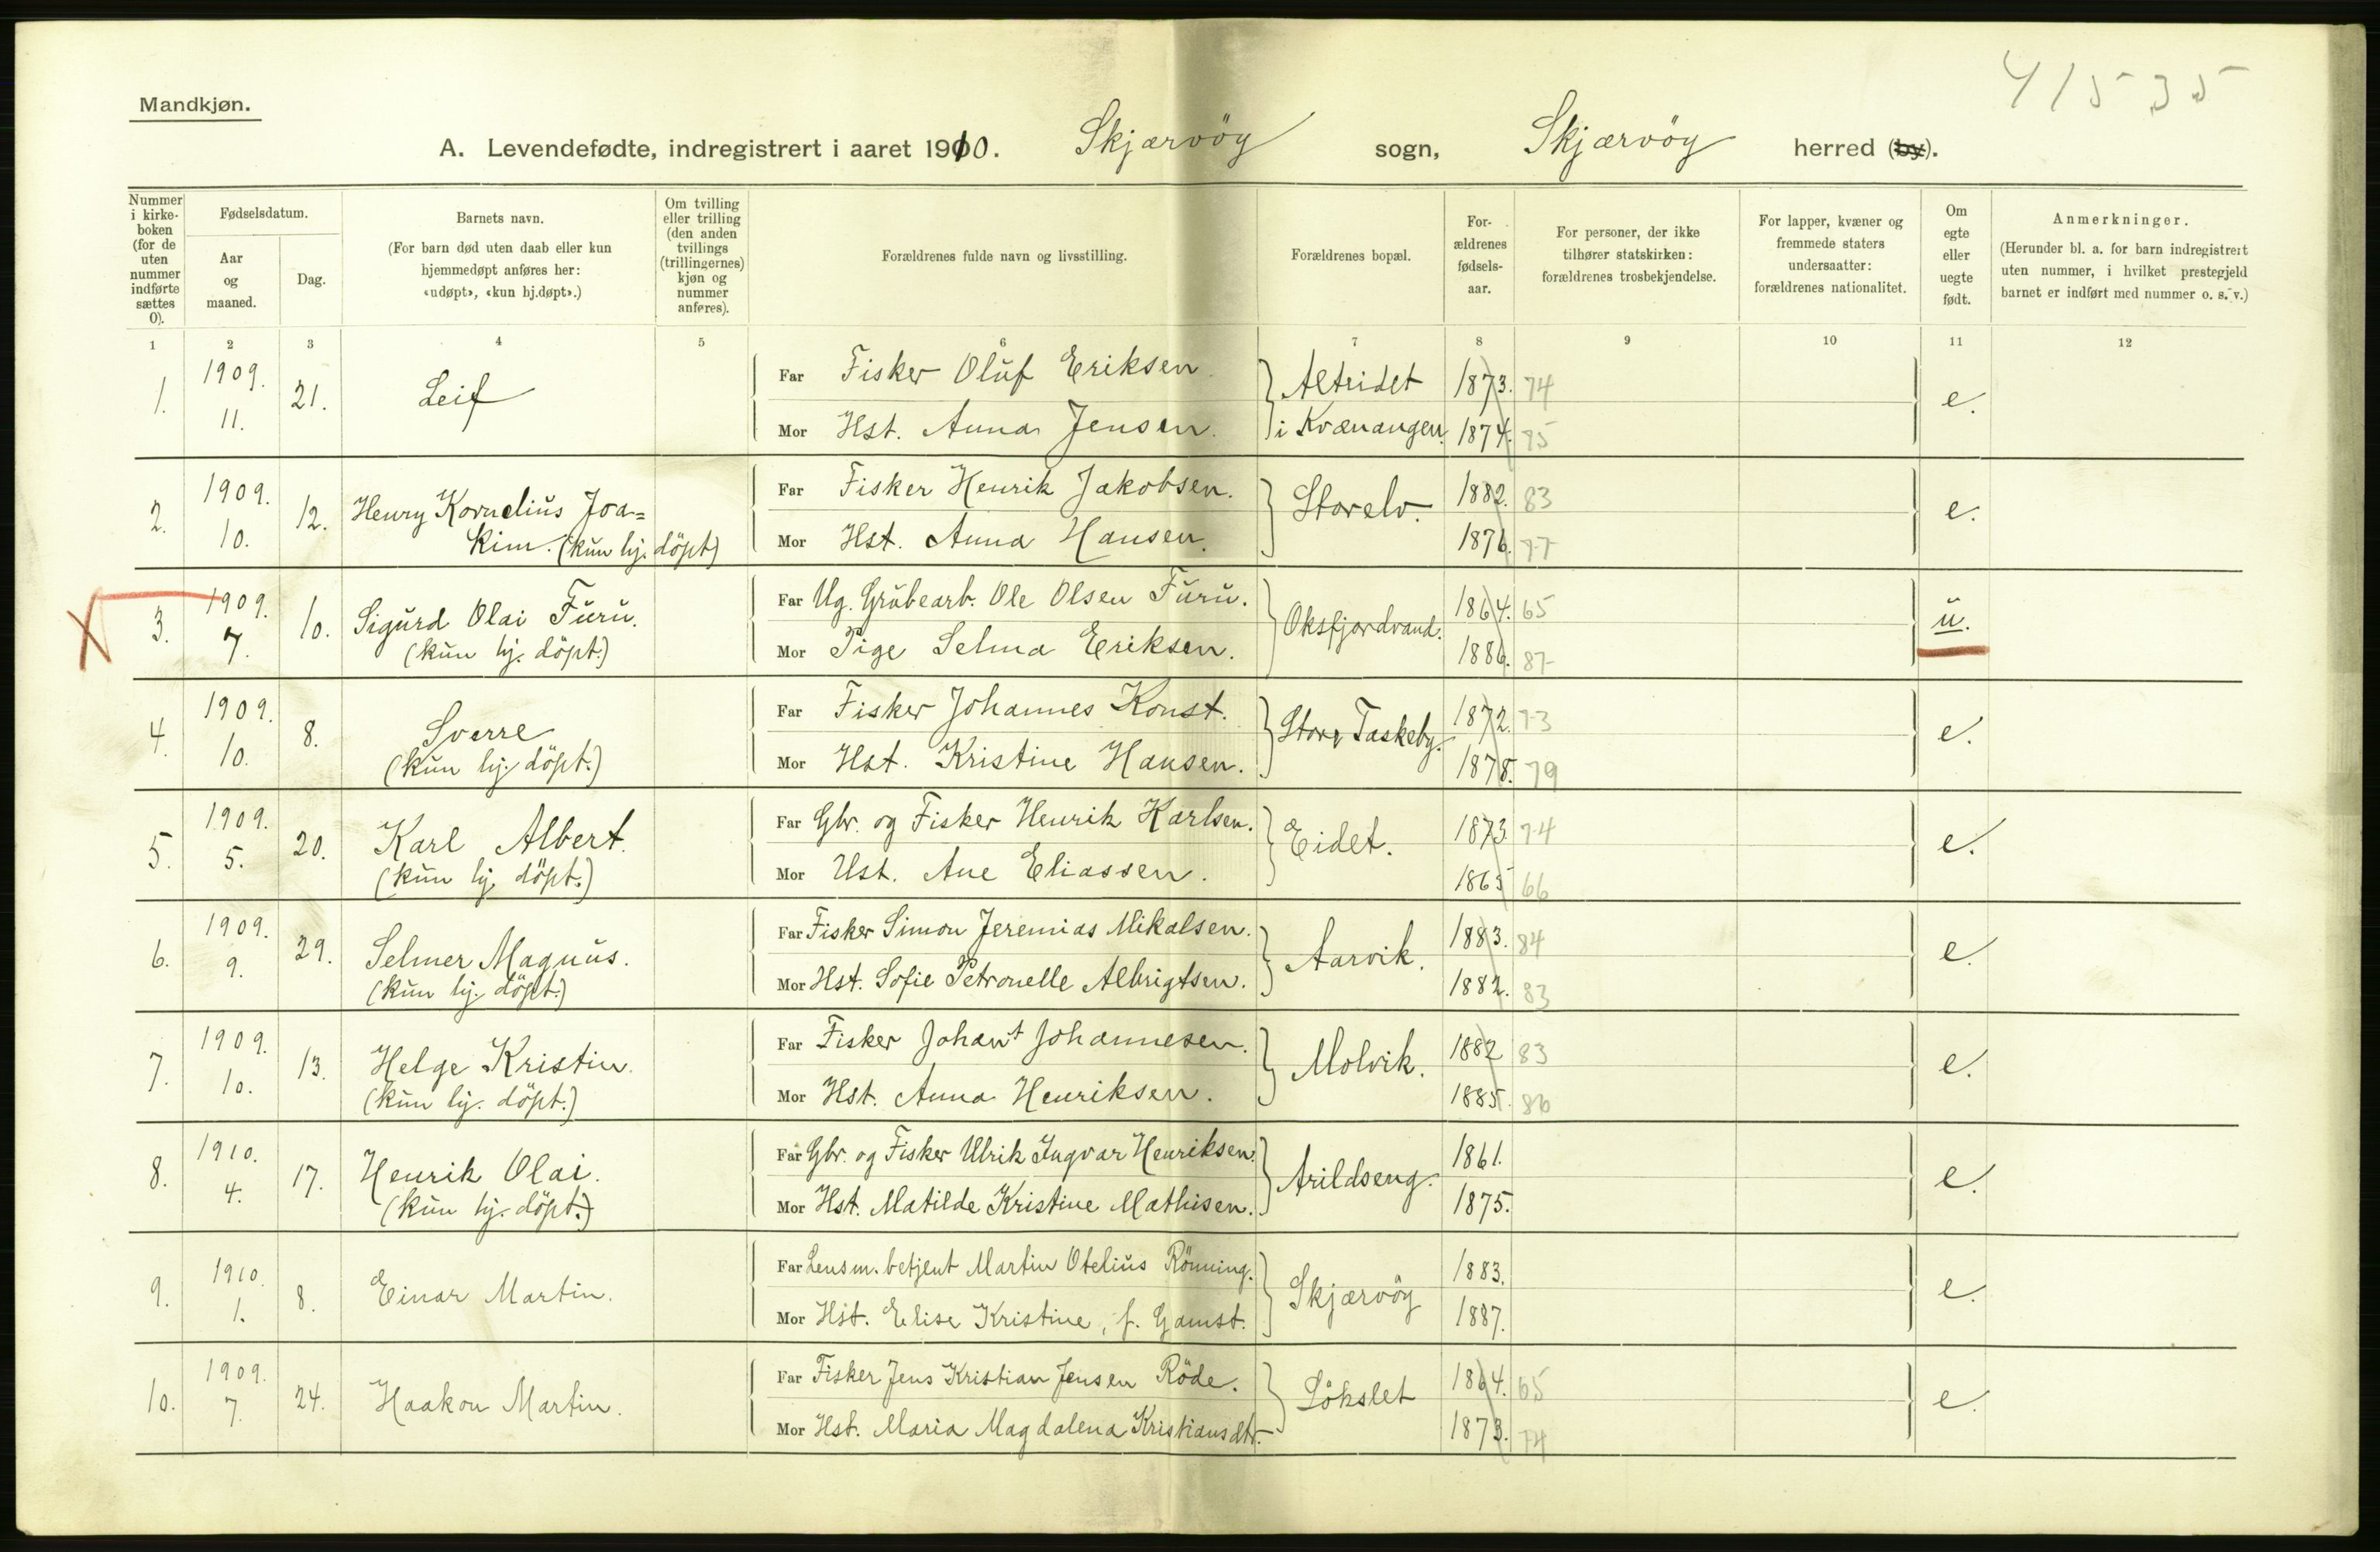 41535
Mandkjøn.
A. Levendefødte, indregistrert i aaret 1910. Skjærvöy sogn, Skjærvöy herred (by).
Nummer i kirke-boken (for de uten nummer indførte sættes 0).
Fødselsdatum.
Aar og maaned.
Dag.
Barnets navn.
(For barn død uten daab eller kun hjemmedøpt anføres her: «udøpt», «kun hj.døpt».)
Om tvilling eller trilling (den anden tvillings (trillingernes) kjøn og nummer anføres).
Forældrenes fulde navn og livsstilling.
Forældrenes bopæl.
For-ældrenes fødsels-aar.
For personer, der ikke tilhører statskirken: forældrenes trosbekjendelse.
For lapper, kvæner og fremmede staters undersaatter: forældrenes nationalitet.
Om egte eller uegte født.
Anmerkninger.
(Herunder bl. a. for barn indregistrert uten nummer, i hvilket prestegjeld barnet er indført med nummer o. s. v.)
1 2 3 4 5 6 7 8 9 10 11 12
1. 1909. 11. 21. Leif
Far Fisker Oluf Eriksen. Alteidet 1873. 74 e.
Mor Hst. Anna Jensen. i Kvænangen. 1874. 75
2. 1909. 10. 12. Henry Kornelius Joa=
kim. (kun hj. döpt)
Far Fisker Henrik Jakobsen. Storelv. 1882. 83 e.
Mor Hst. Anna Hansen. 1876. 77
3. 1909. 7. 10. Sigurd Olai Furu.
(kun hj. döpt.)
Far Ug. Grubearb. Ole Olsen Furu. Oksfjordvand. 1864. 65 u.
Mor Pige Selma Eriksen. 1886. 87
4. 1909. 10. 8. Sverre
(kun hj. döpt.)
Far Fisker Johannes Konst. Store Taskeby. 1872. 73 e.
Mor Hst. Kristine Hansen. 1878. 79
5. 1909. 5. 20. Karl Albert.
(kun hj. döpt.)
Far Gbr. og Fisker Henrik Karlsen. Eidet. 1873 74 e.
Mor Hst. Ane Eliassen. 1865 66
6. 1909. 9. 29. Selmer Magnus.
(kun hj. döpt.)
Far Fisker Simon Jeremias Mikalsen. Aarvik. 1883. 84 e.
Mor Hst. Sofie Petronelle Albrigtsen. 1882. 83
7. 1909. 10. 13. Helge Kristin.
(kun hj. döpt.)
Far Fisker Johan Johannesen. Molvik. 1882 83 e.
Mor Hst. Anna Henriksen. 1885. 86
8. 1910. 4. 17. Henrik Olai.
(kun hj. döpt.)
Far Gbr. og Fisker Ulrik Ingvar Henriksen. Arildseng. 1861. e.
Mor Hst. Matilde Kristine Mathisen. 1875.
9. 1910. 1. 8. Einar Martin.
Far Lensm. betjent Martin Otelius Rönning. Skjærvöy 1883. e.
Mor Hst. Elise Kristine, f. Gamst. 1887.
10. 1909. 7. 24. Haakon Martin.
Far Fisker Jens Kristian Jensen Röde. Lökslet 1864. 65 e.
Mor Hst. Maria Magdalena Kristiansdtr. 1873. 74